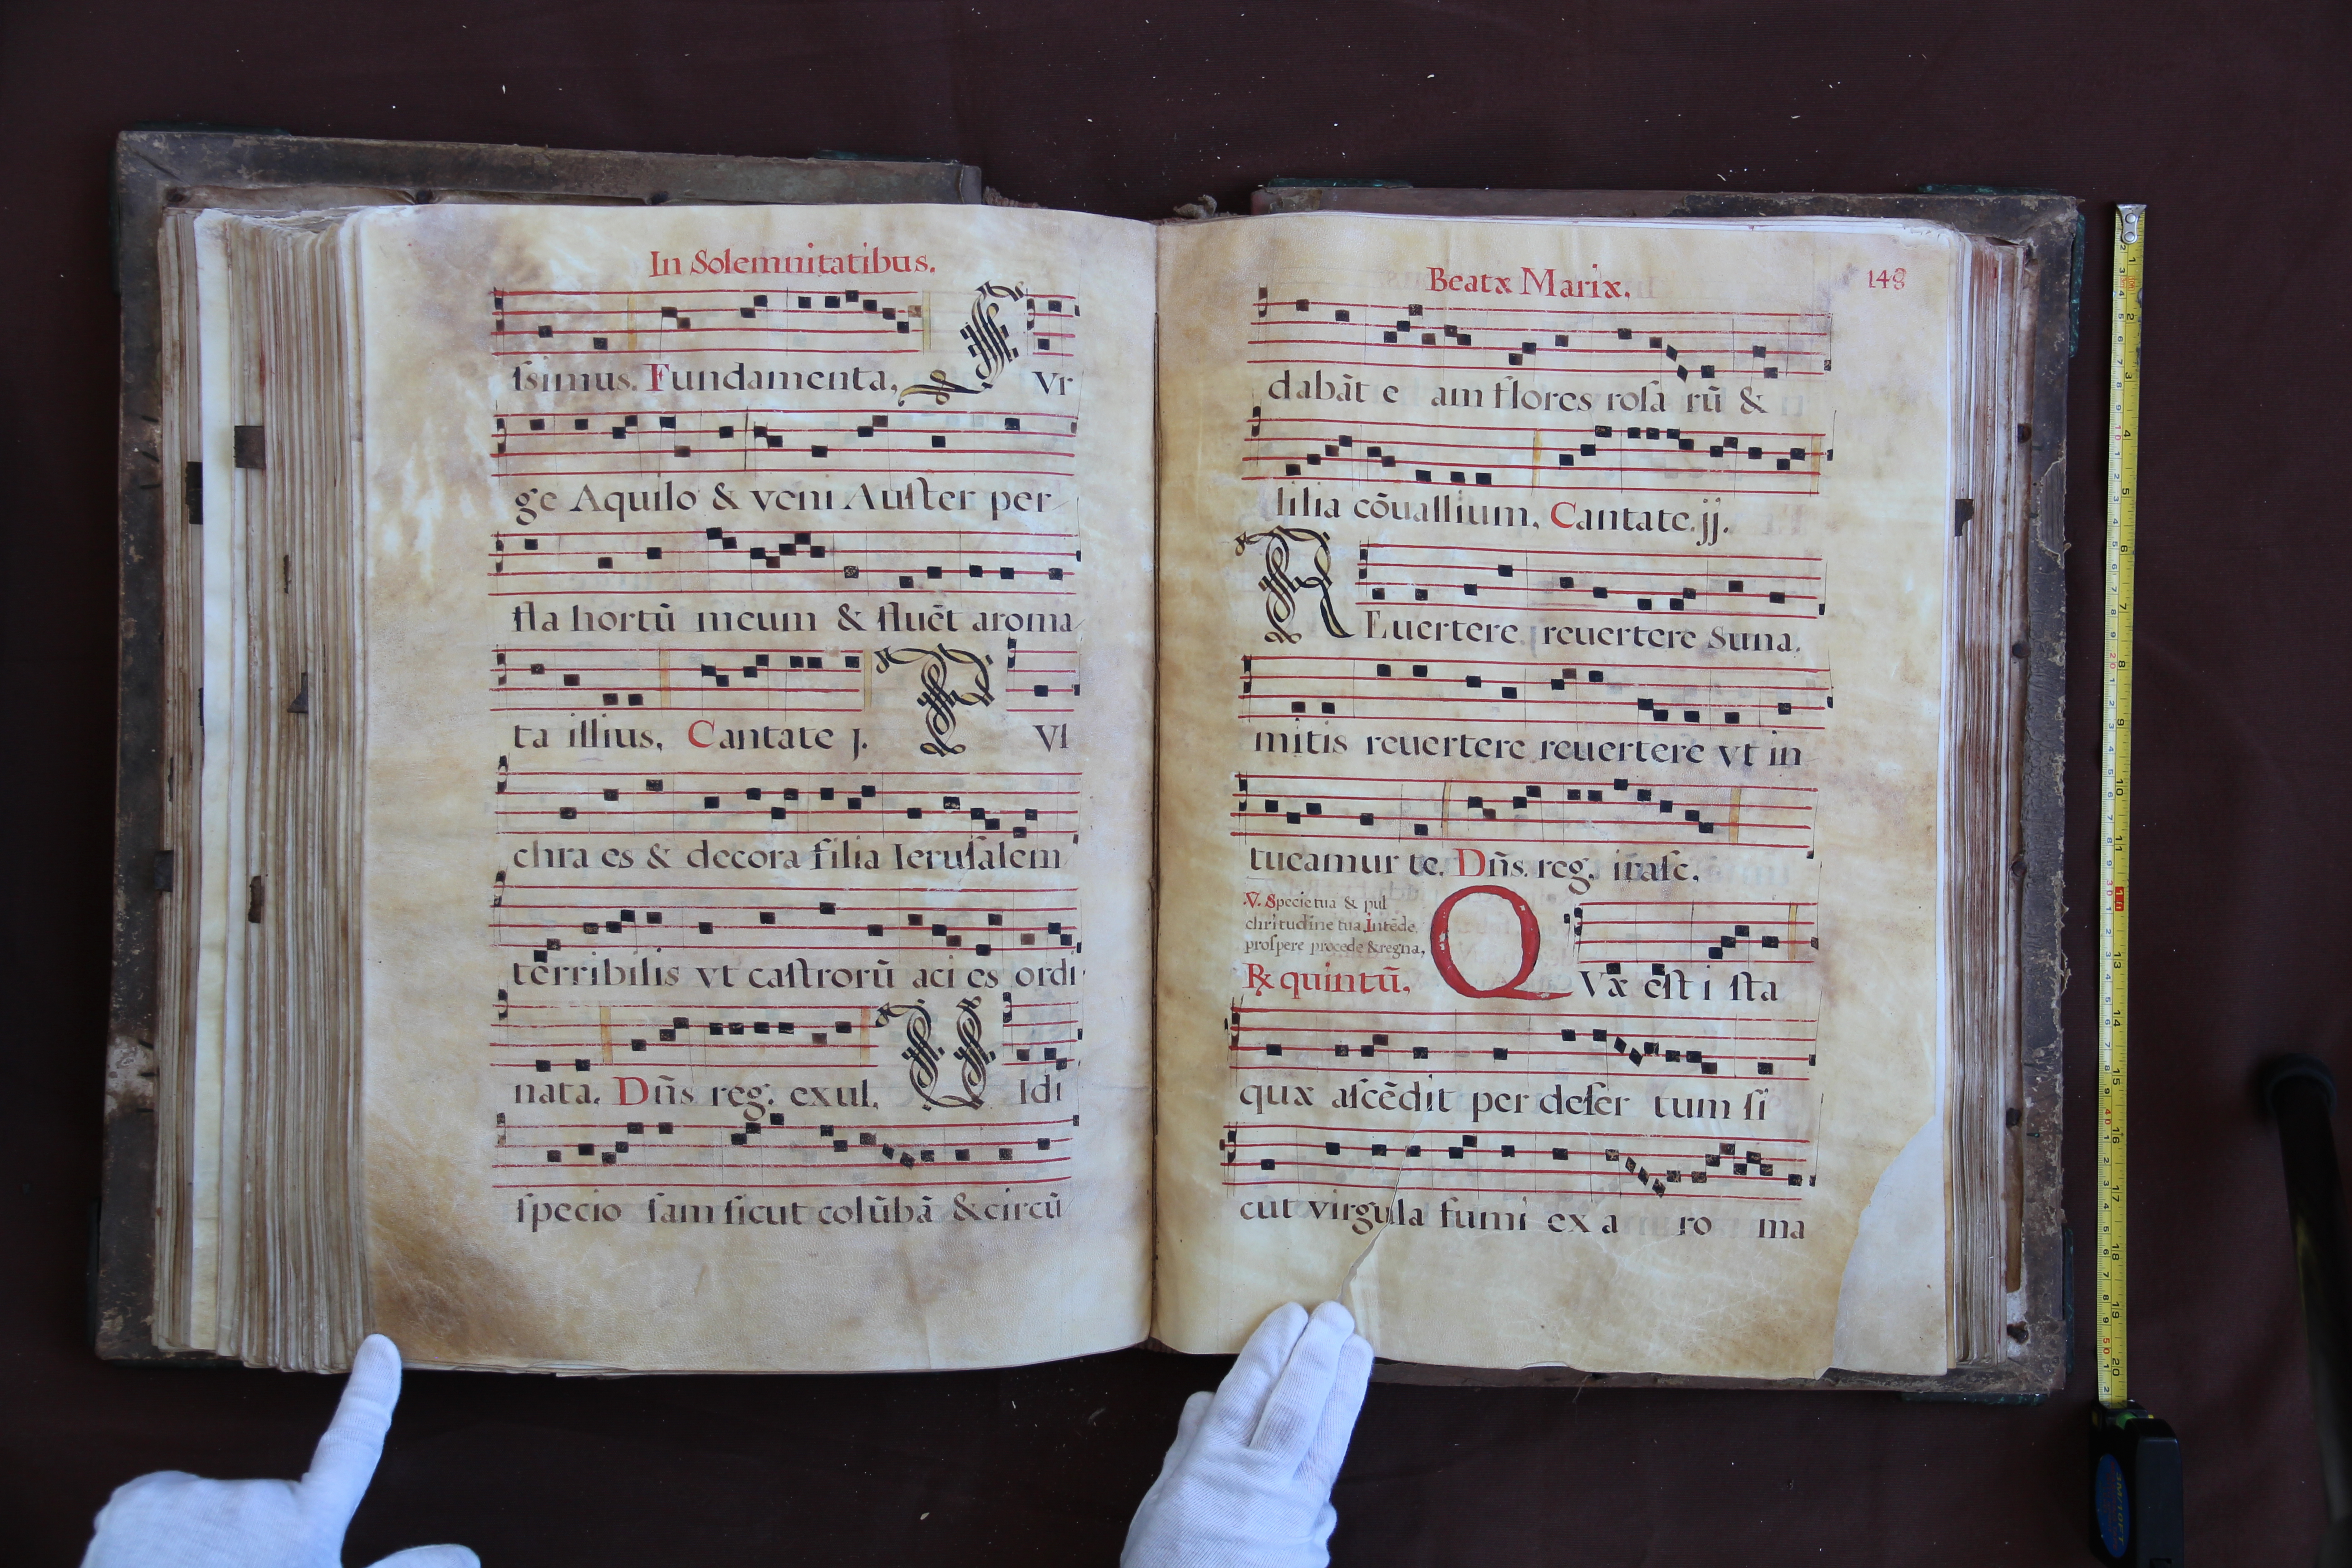 In Solemnitatibus.
ſsimus. Fundamenta, S Vr
ge Aquilo & veni Auſter per
fla hortū meum & fluēt aroma
ta illius, Cantate j. P Vl
chra es & decora filia Ieruſalem
terribilis vt caſtrorū aci es ordi
nata. Dñs reg. exul. V Idi
ſpecio ſam ſicut colūbā & circū
Beatæ Mariæ. 148
dabāt e am flores roſa rū &
lilia cōuallium, Cantate.jj.
R Euertere reuertere Suna.
mitis reuertere reuertere vt in
tueamur te. Dñs. reg. iraſc.
.V. Specie tua & pul
chritudine tua Intēde,
proſpere procede & regna,
℟ quintū, Q Væ eſt i ſta
quæ aſcēdit per deſer tum ſi
cut virgula fumi ex a ro ma